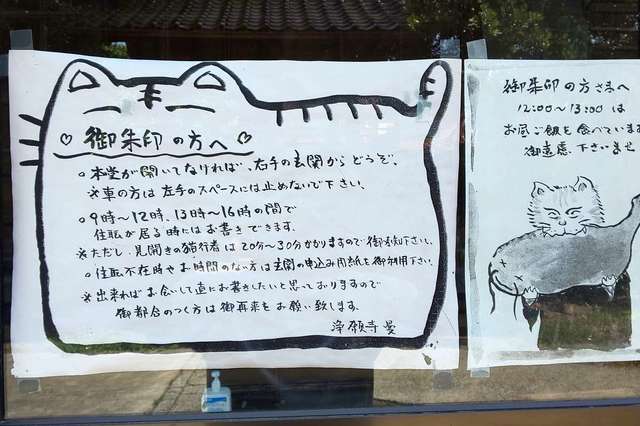 ♡御朱印の方へ♡
○本堂が開いてなければ、右手の玄関からどうぞ。
※車の方は左手のスペースには止めないで下さい。
○9時〜12時、13時〜16時の間で
住職が居る時にはお書きできます。
※ただし、見開きの猫行者は20分〜30分かかりますので御承知下さい。
○住職不在時やお時間のない方は玄関の申込み用紙を御利用下さい。
※出来ればお会いして直にお書きしたいと思っておりますので
御都合のつく方は御再来をお願い致します。
浄願寺
御朱印の方さまへ
12:00〜13:00は
お昼ご飯を食べています
御遠慮下さいませ